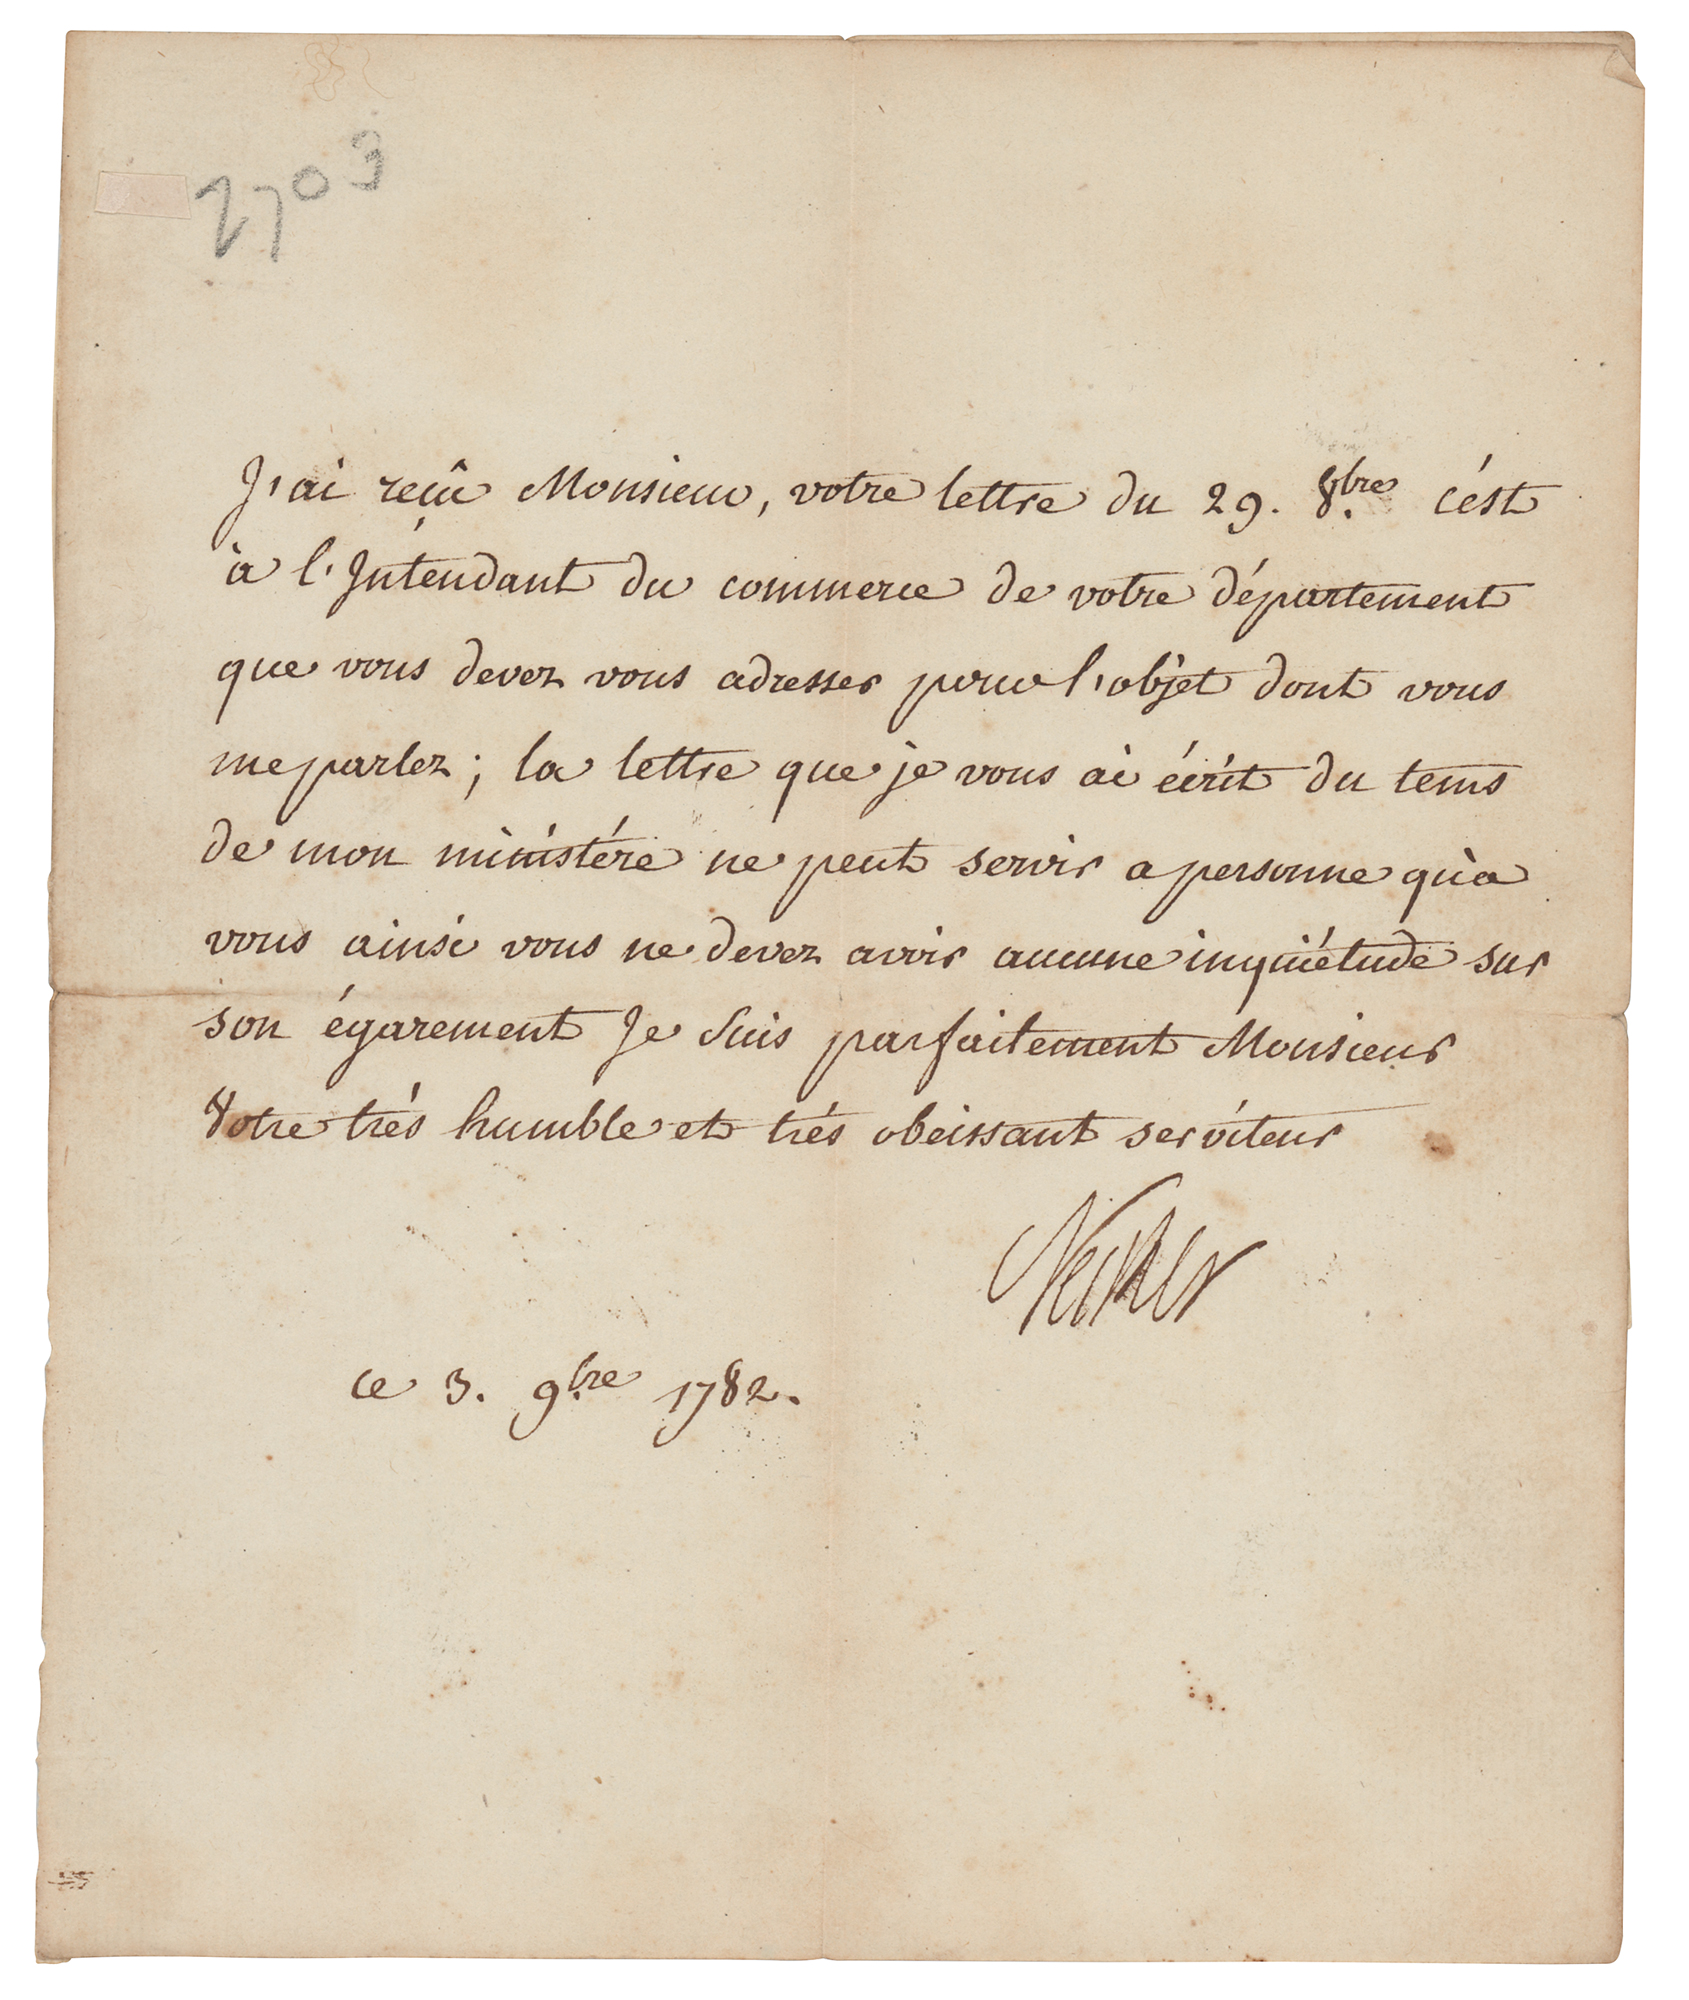 2703
J'ai reçû Monsieur, votre lettre du 29. 8.bre c'est
à l'Intendant du commerce de votre département
que vous devez vous adresser pour l'objet dont vous
me parlez; la lettre que je vous ai écrit du tems
de mon ministére ne peut servir a personne qu'a
vous ainsi vous ne devez avoir aucune inquiétude sur
son égarement Je suis parfaitement Monsieur
Votre trés humble et trés obeissant serviteur
Necker
ce 3. 9.bre 1782.